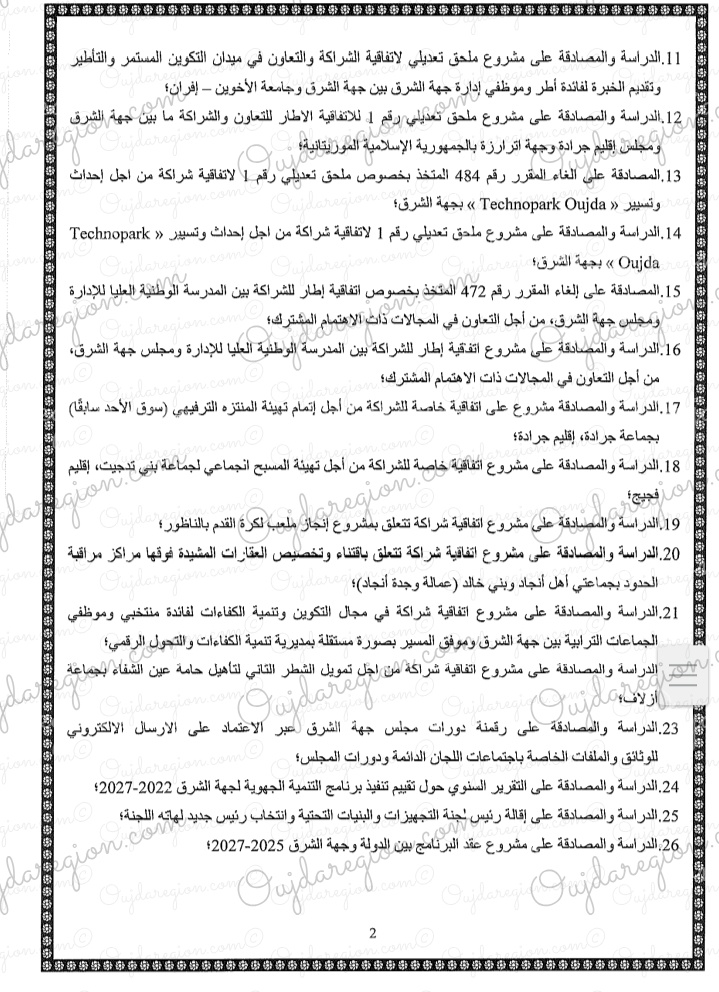 11.الدراسة والمصادقة على مشروع ملحق تعديلي لاتفاقية الشراكة والتعاون في ميدان التكوين المستمر والتأطير
وتقديم الخبرة لفائدة أطر وموظفي إدارة جهة الشرق بين جهة الشرق وجامعة الأخوين – إفران؛
12.الدراسة والمصادقة على مشروع ملحق تعديلي رقم 1 للاتفاقية الاطار للتعاون والشراكة ما بين جهة الشرق
ومجلس إقليم جرادة وجهة اترارزة بالجمهورية الإسلامية الموريتانية؛
13.المصادقة على الغاء المقرر رقم 484 المتخذ بخصوص ملحق تعديلي رقم 1 لاتفاقية شراكة من اجل إحداث
وتسيير « Technopark Oujda » بجهة الشرق؛
14.الدراسة والمصادقة على مشروع ملحق تعديلي رقم 1 لاتفاقية شراكة من اجل إحداث وتسيير « Technopark
Oujda » بجهة الشرق؛
15.المصادقة على إلغاء المقرر رقم 472 المتخذ بخصوص اتفاقية إطار للشراكة بين المدرسة الوطنية العليا للإدارة
ومجلس جهة الشرق، من أجل التعاون في المجالات ذات الاهتمام المشترك؛
16.الدراسة والمصادقة على مشروع اتفاقية إطار للشراكة بين المدرسة الوطنية العليا للإدارة ومجلس جهة الشرق،
من أجل التعاون في المجالات ذات الاهتمام المشترك؛
17.الدراسة والمصادقة مشروع على اتفاقية خاصة للشراكة من أجل إتمام تهيئة المنتزه الترفيهي (سوق الأحد سابقًا)
بجماعة جرادة، إقليم جرادة؛
18.الدراسة والمصادقة على مشروع اتفاقية خاصة للشراكة من أجل تهيئة المسبح الجماعي لجماعة بني تدجيت، إقليم
فجيج؛
19.الدراسة والمصادقة على مشروع اتفاقية شراكة تتعلق بمشروع إنجاز ملعب لكرة القدم بالناظور؛
20.الدراسة والمصادقة على مشروع اتفاقية شراكة تتعلق باقتناء وتخصيص العقارات المشيدة فوقها مراكز مراقبة
الحدود بجماعتي أهل أنجاد وبني خالد (عمالة وجدة أنجاد)؛
21.الدراسة والمصادقة على مشروع اتفاقية شراكة في مجال التكوين وتنمية الكفاءات لفائدة منتخبي وموظفي
الجماعات الترابية بين جهة الشرق وموفق المسير بصورة مستقلة بمديرية تنمية الكفاءات والتحول الرقمي؛
الدراسة والمصادقة على مشروع اتفاقية شراكة من اجل تمويل الشطر الثاني لتأهيل حامة عين الشفاء بجماعة
أزلاف؛
23.الدراسة والمصادقة على رقمنة دورات مجلس جهة الشرق عبر الاعتماد على الارسال الالكتروني
للوثائق والملفات الخاصة باجتماعات اللجان الدائمة ودورات المجلس؛
24.الدراسة والمصادقة على التقرير السنوي حول تقييم تنفيذ برنامج التنمية الجهوية لجهة الشرق 2022-2027؛
25.الدراسة والمصادقة على إقالة رئيس لجنة التجهيزات والبنيات التحتية وانتخاب رئيس جديد لهاته اللجنة؛
26.الدراسة والمصادقة على مشروع عقد البرنامج بين الدولة وجهة الشرق 2025-2027؛
2
Oujdaregion.com©